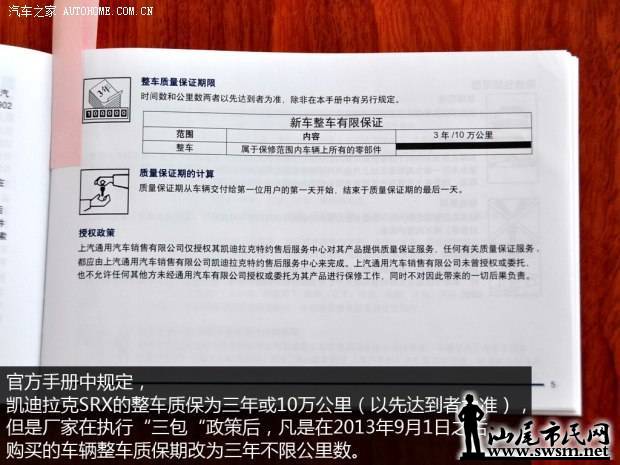 汽车之家 AUTOHOME.COM.CN
整车质量保证期限
时间数和公里数两者以先达到者为准，除非在本手册中有另行规定。
3年
100000
新车整车有限保证
范围 内容 3 年 /10 万公里
整车 属于保修范围内车辆上所有的零部件
质量保证期的计算
质量保证期从车辆交付给第一位用户的第一天开始，结束于质量保证期的最后一天。
授权政策
上汽通用汽车销售有限公司仅授权其凯迪拉克特约售后服务中心对其产品提供质量保证服务，任何有关质量保证服务，
都应由上汽通用汽车销售有限公司凯迪拉克特约售后服务中心来完成。上汽通用汽车销售有限公司未曾授权或委托，
也不允许任何其他方未经通用汽车有限公司授权或委托为其产品进行保修工作，同时不对因此带来的一切后果负责。
汽
902
在
后
件
索
5
官方手册中规定，
凯迪拉克SRX的整车质保为三年或10万公里（以先达到者为准），
但是厂家在执行“三包“政策后，凡是在2013年9月1日之后
购买的车辆整车质保期改为三年不限公里数。
汕尾市民网
www.swsm.net